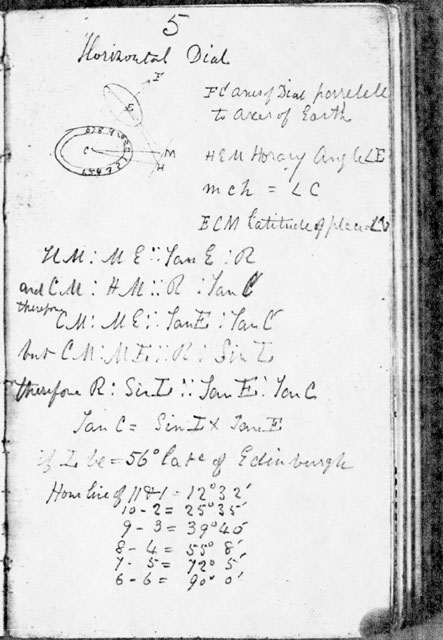 5
Horizontal Dial
F
E
C
M
H
FC axes of Dial parrelell
to axes of Earth
HEM Horary Angle LE
mch = LC
ECM Latitude of place LL
HM : ME :: Tan E : R
and CM : HM :: R : Tan C
therefore
CM : ME :: Tan E : Tan C
but CM : ME :: R : Sin L
therefore R : Sin L :: Tan E : Tan C
Tan C = Sin L x Tan E
if L be = 56° late of Edinburgh
Hour line of 11&1 = 12° 32'
10 - 2 = 25° 35'
9 - 3 = 39° 40'
8 - 4 = 55° 8'
7 - 5 = 72° 5'
6 - 6 = 90° 0'